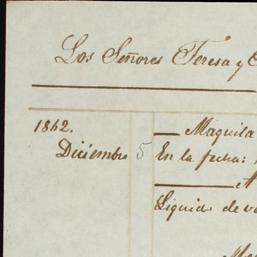 Los Señores Teresa y
1842.
— Maquila
Diciembre 5 En la fecha:
Liquid de